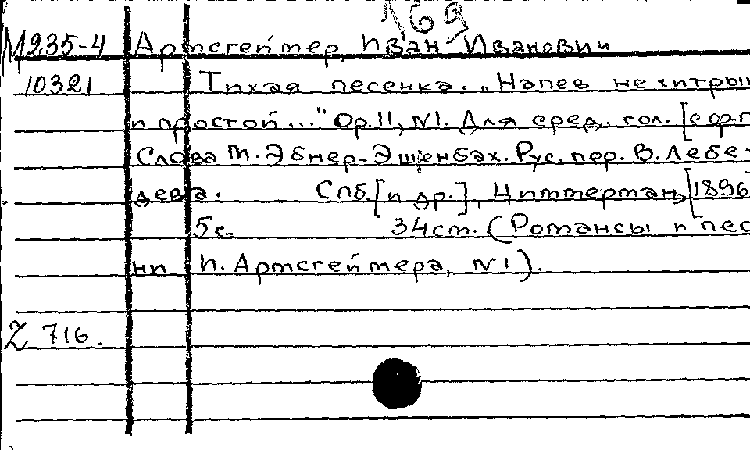 169
М235-4 Артсгеймер, Иван Иванович
10321 Тихая песенка. „Напев не хитрый
и простой..." Op.11, №1. Для сред. гол. [с фп
Слова М. Эбнер-Эшенбах. Рус. пер. В. Лебе-
дева. Спб. [и др.], Циммерман, [1896
5с. 34см. (Романсы и пес
ни И. Армсгеймера, №1).
Z 716.